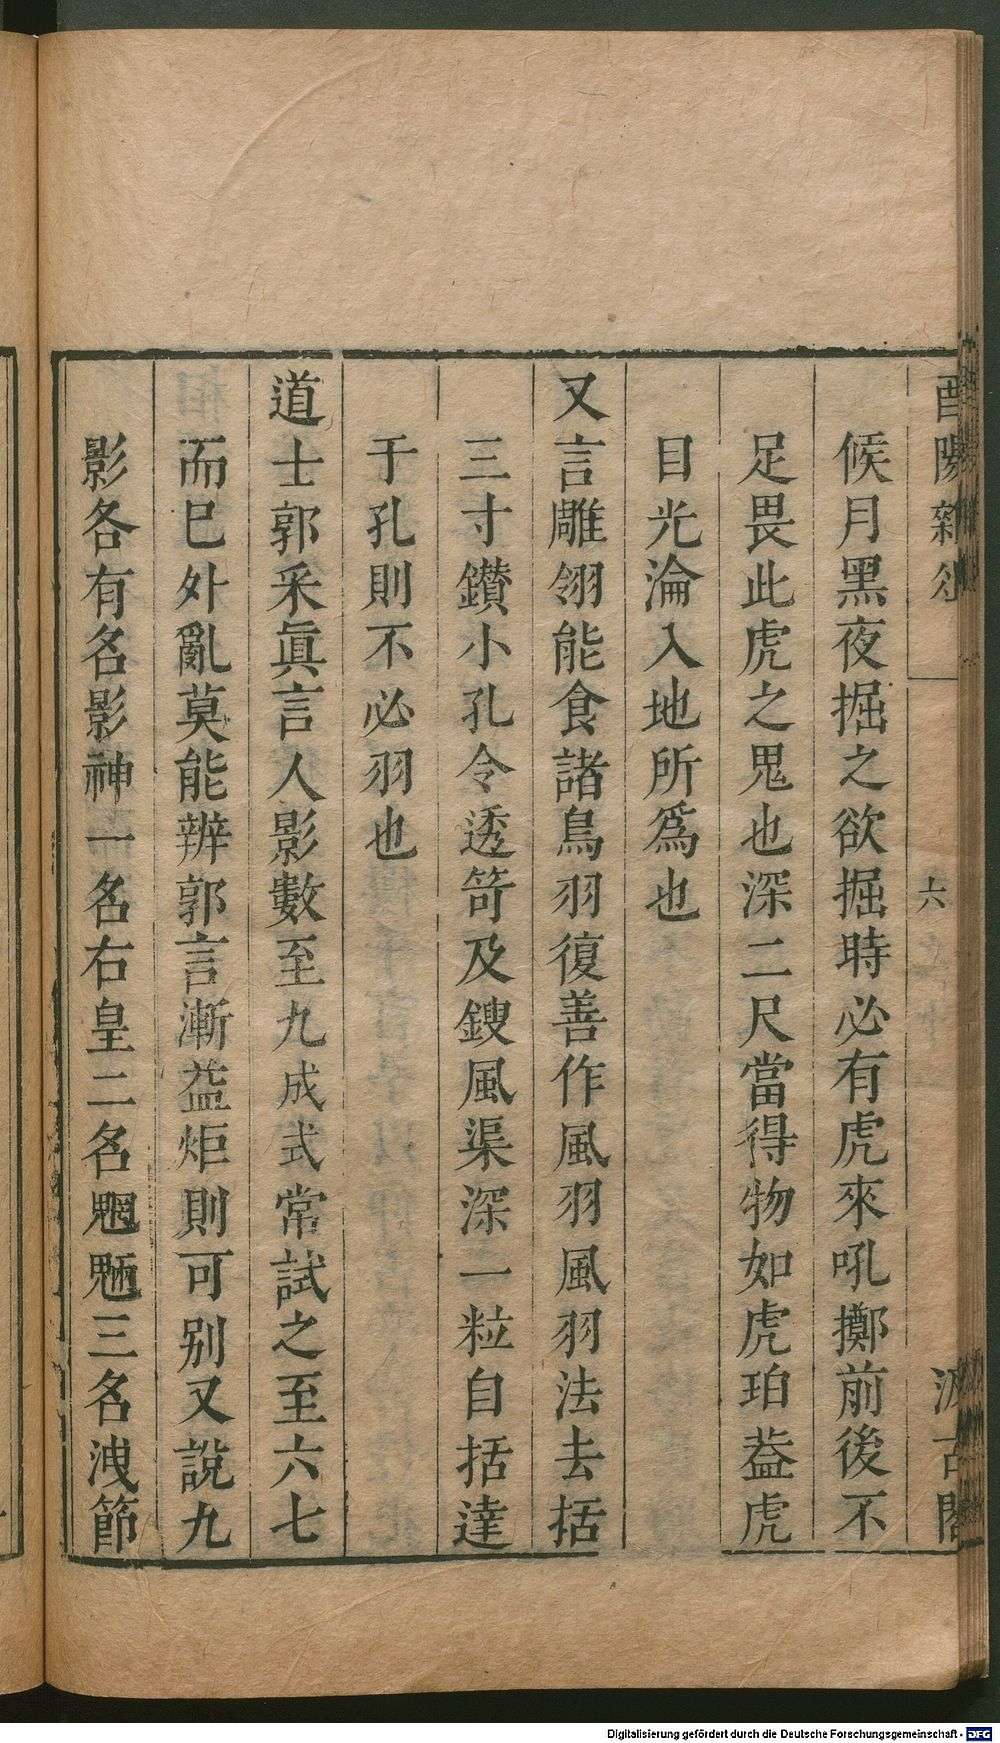 酉陽雜俎
六
汲古閣
候月黑夜掘之欲掘時必有虎來吼擲前後不
足畏此虎之鬼也深二尺當得物如虎珀葢虎
目光淪入地所爲也
又言雕翎能食諸鳥羽復善作風羽風羽法去括
三寸鑽小孔令透笴及鎪風渠深一粒自括達
于孔則不必羽也
道士郭采眞言人影數至九成式常試之至六七
而巳外亂莫能辨郭言漸益炬則可别又說九
影各有名影神一名右皇二名魍魎三名洩節
Digitalisierung gefördert durch die Deutsche Forschungsgemeinschaft - DFG